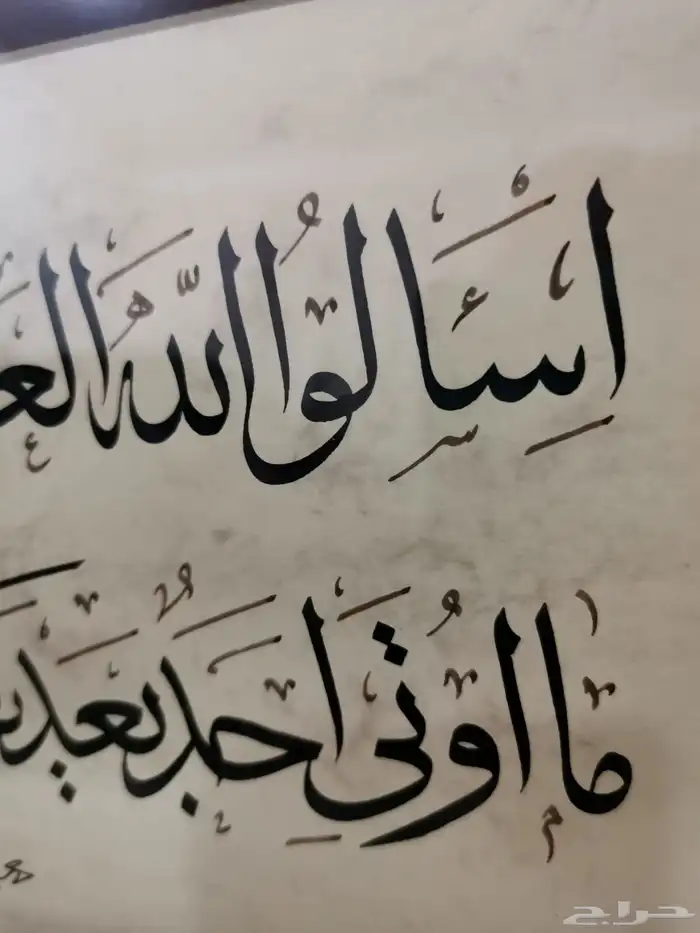 اِسْئَالُوا اللّٰهَ الع
مَا اُوتِىَ اَحَدٌ بَعْدَ
حراج